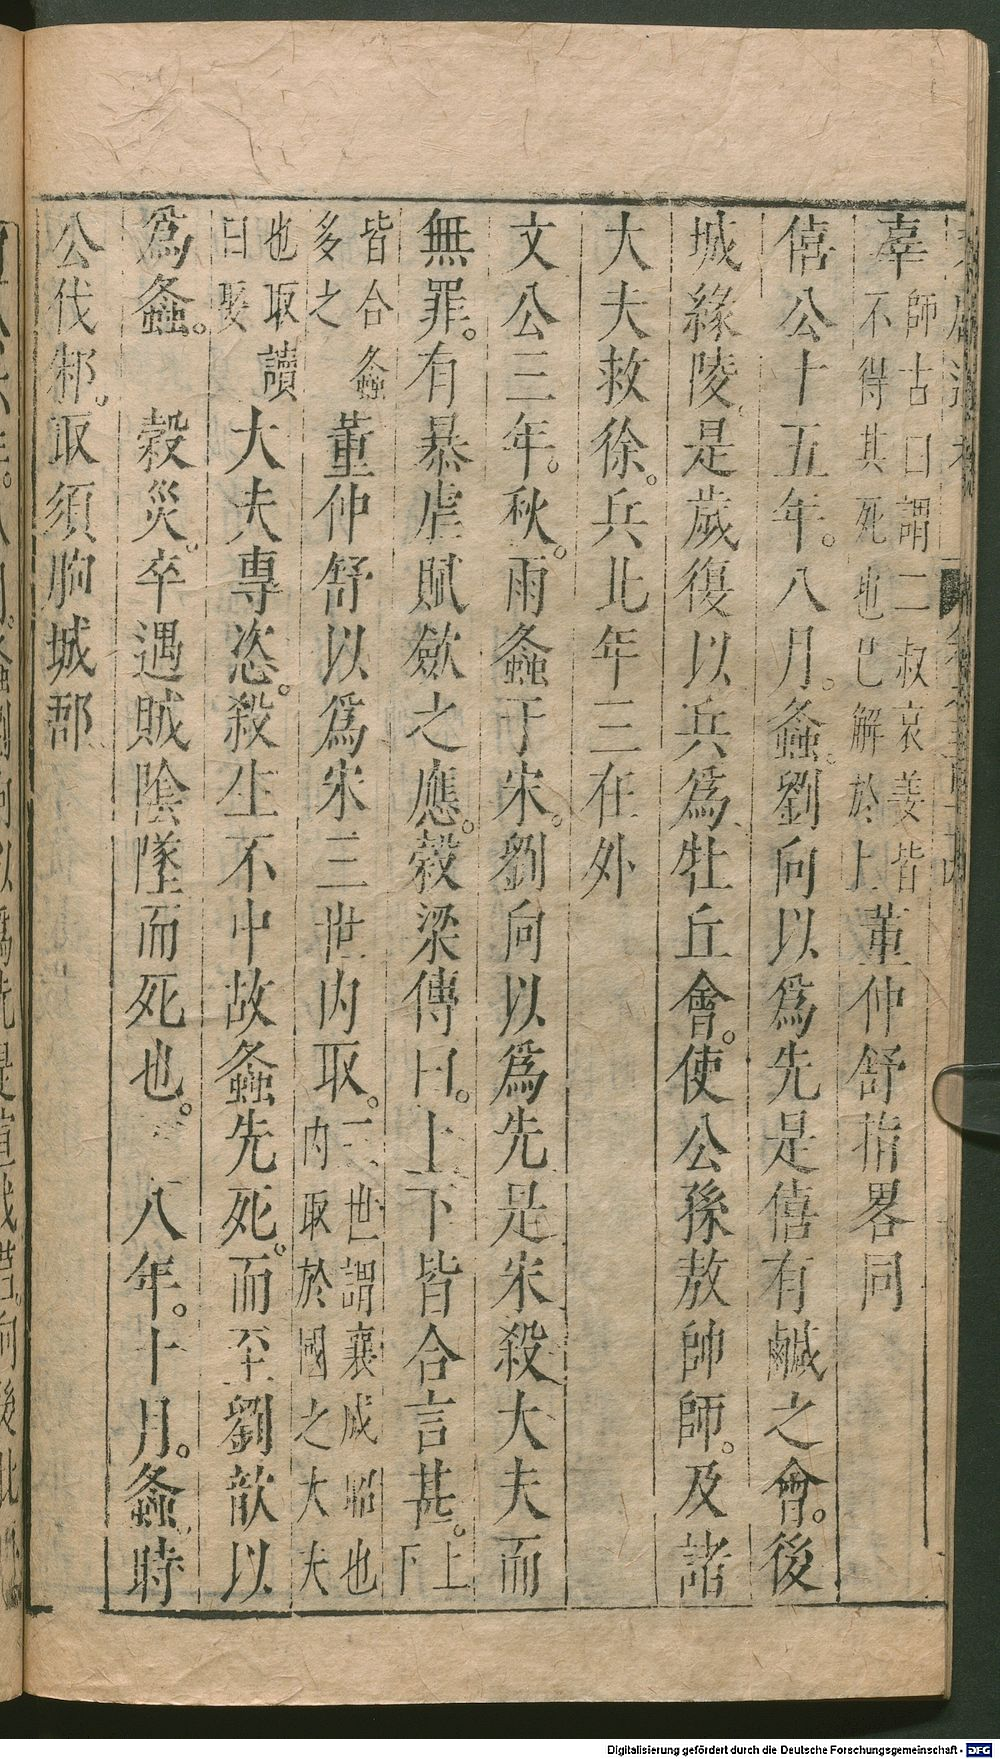 辜 師古曰謂二叔哀姜皆不得其死也已解於上 董仲舒指畧同
僖公十五年。八月。螽。劉向以爲先是僖有鹹之會。後
城緣陵。是歲復以兵爲牡丘會。使公孫敖帥師。及諸
大夫救徐。兵北年三在外
文公三年。秋。雨螽于宋。劉向以爲先是宋殺大夫而
無罪。有暴虐賦歛之應。穀梁傳曰。上下皆合言甚。上下
皆合螽多之 董仲舒以爲宋三世内取。三世謂襄成昭也内取於國之大夫
也取讀曰娶 大夫專恣。殺生不中故螽先死。而至劉歆以
爲螽。 穀災。卒遇賊陰墜而死也。 八年。十月。螽。時
公伐邾。取須朐城郚
Digitalisierung gefördert durch die Deutsche Forschungsgemeinschaft - DFG